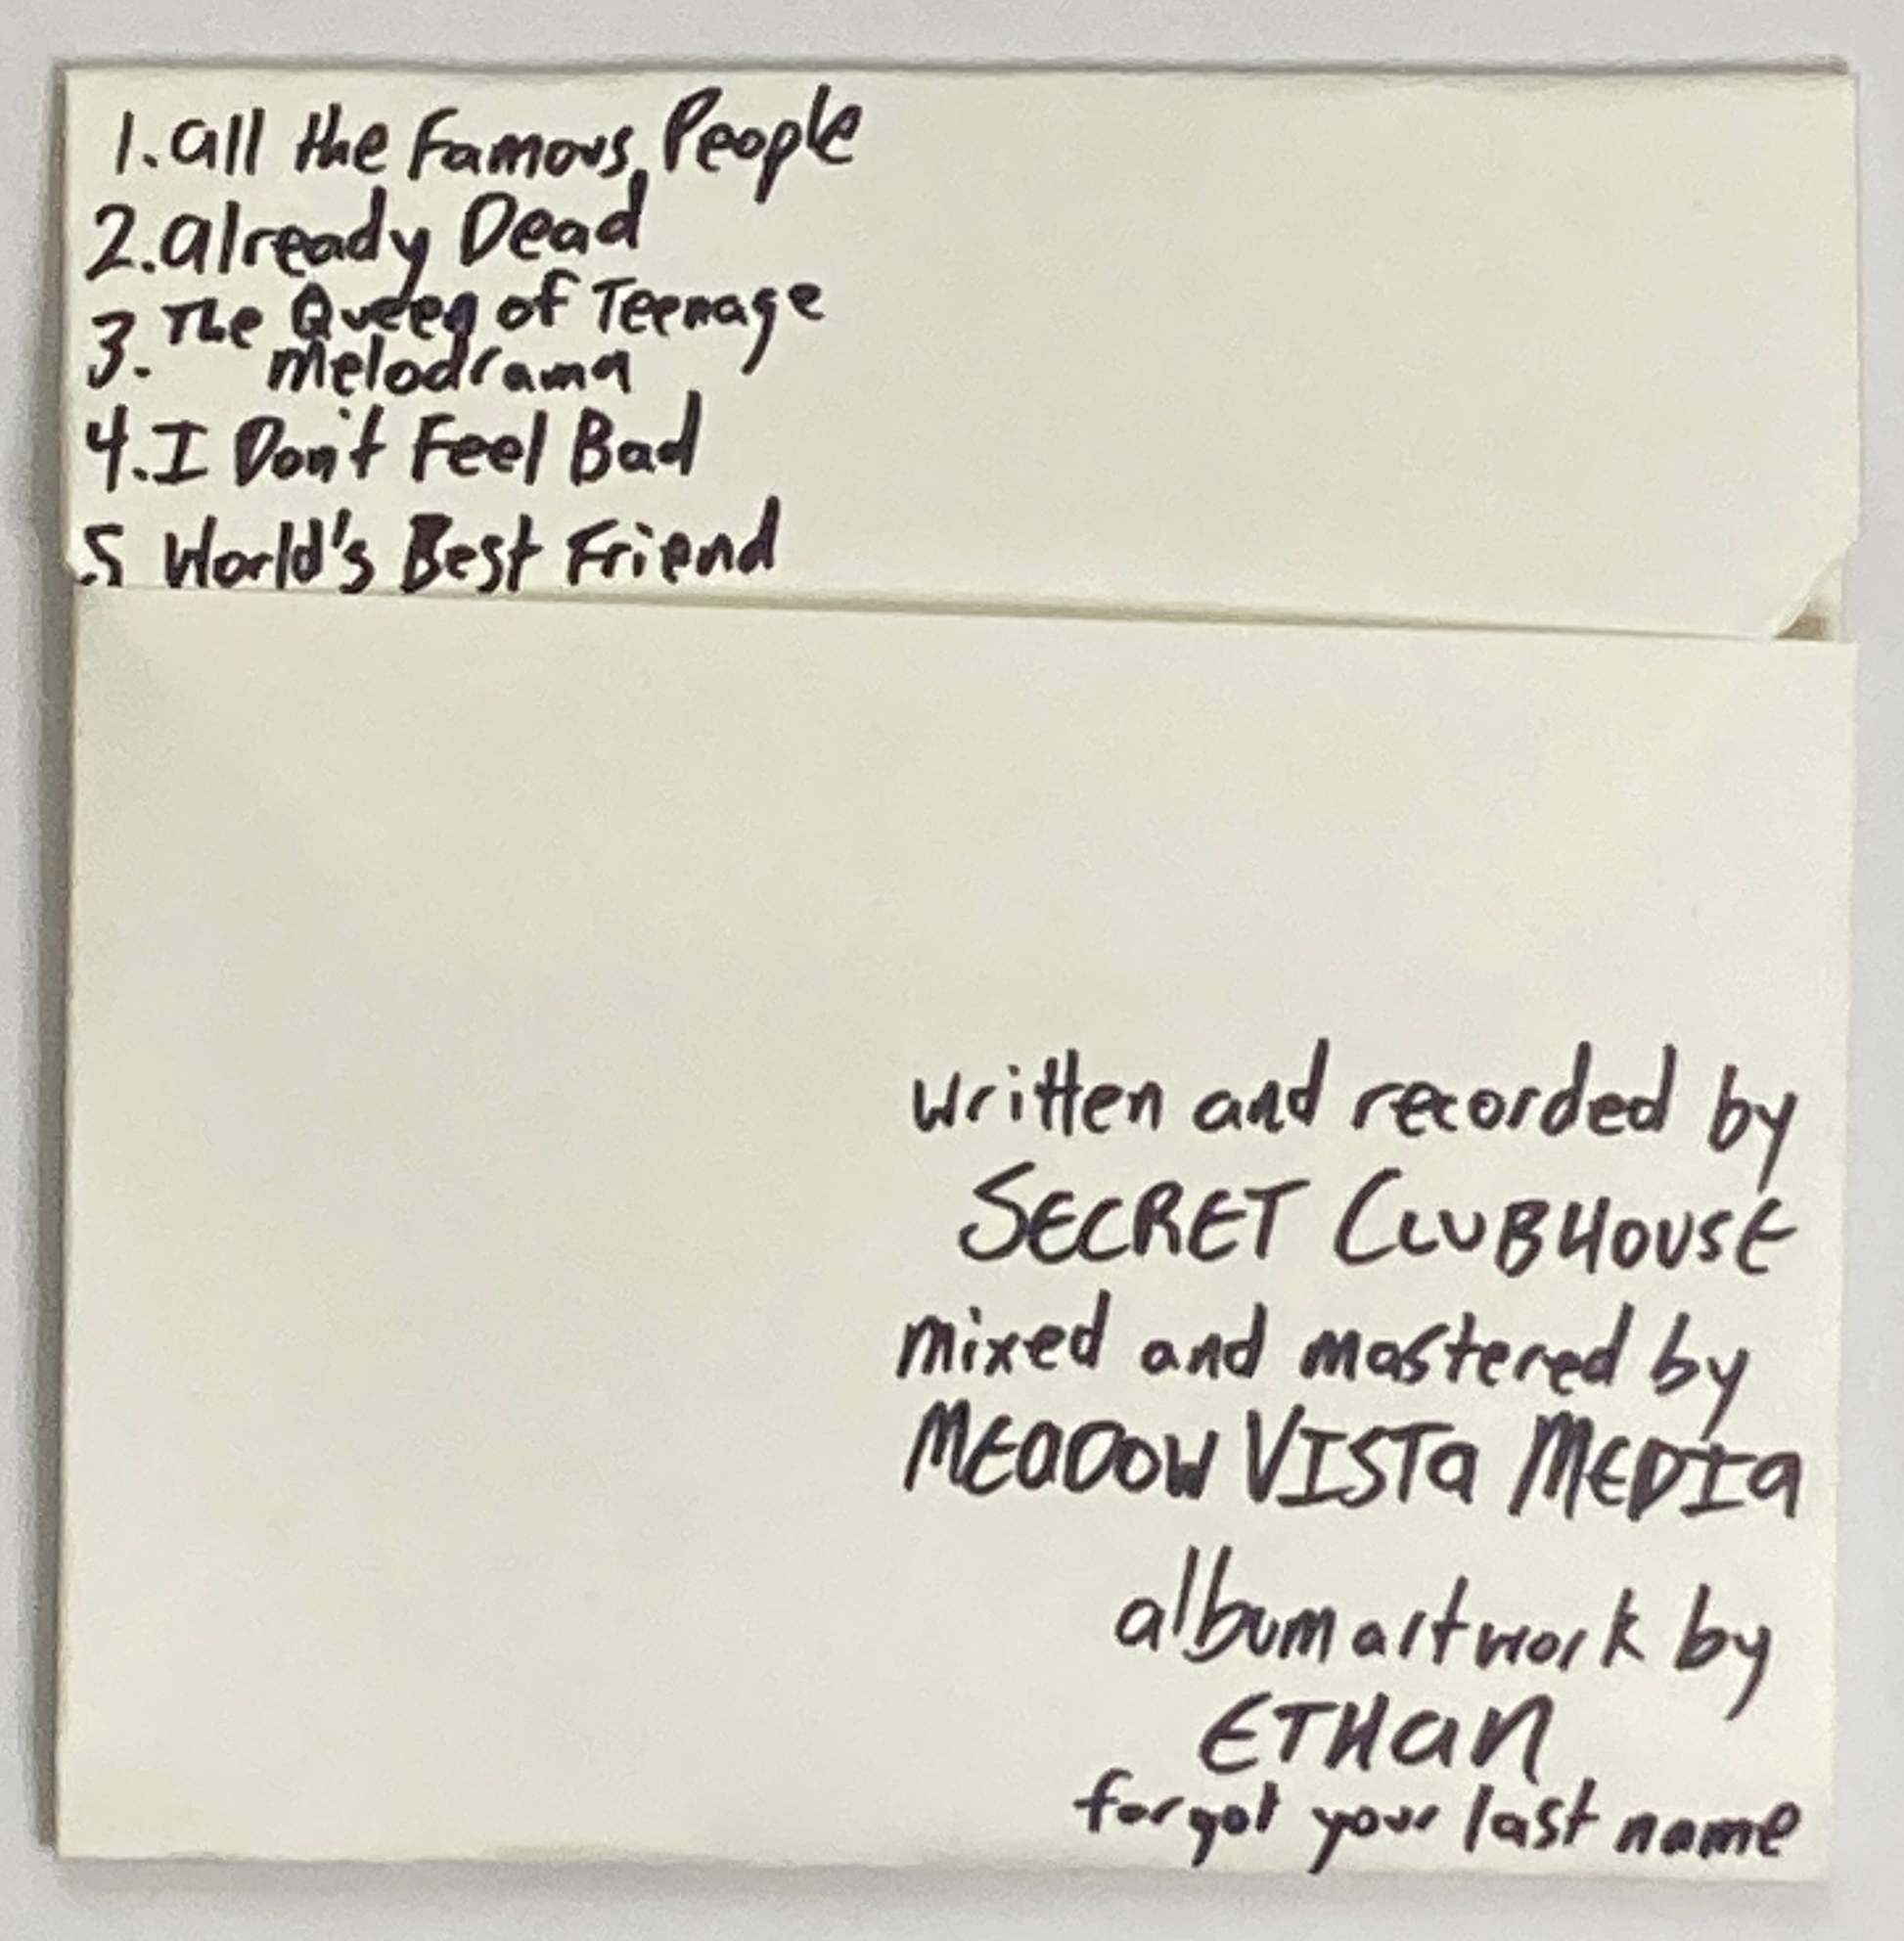 1. all the Famous People
2. already Dead
3. The Queen of Teenage
melodrama
4. I Don't Feel Bad
5 World's Best Friend
written and recorded by
SECRET CLUBHOUSE
mixed and mastered by
MEADOW VISTA MEDIA
album artwork by
ETHAN
forgot your last name